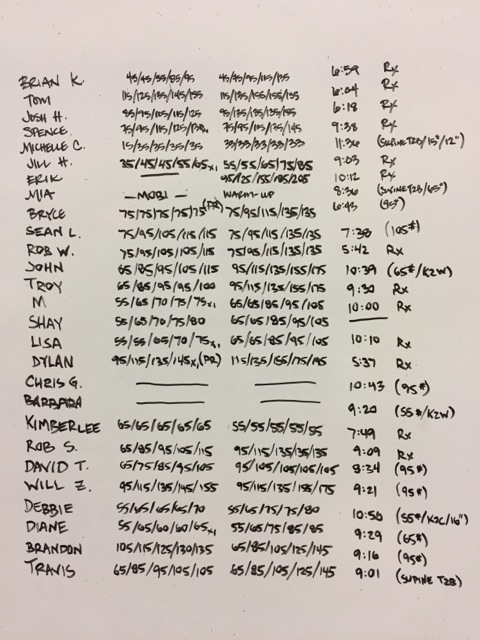 BRIAN K. 45/45/55/85/95 45/45/95/115/135 6:59 Rx
TOM 115/125/135/145/155 115/135/155/155/155 6:04 Rx
JOSH H. 85/95/105/115/125 95/135/135/135/155 6:18 Rx
SPENCE. 75/95/115/125/ 75/95/115/135/145 9:38 Rx
MICHELLE C. 15/35/35/35/35 33/33/33/33/33 11:36 (SUPINE T2B/15#/12")
JILL H. 35/45/45/55/65x1 55/55/65/75/85 9:03 Rx
ERIK 95/125/155/185/205 10:12 Rx
MIA —MOBI— WARM-UP 8:36 (SUPINE T2B/65#)
BRYCE 75/75/75/75/75(PR) 75/95/115/135/135 6:43 (95#)
SEAN L. 75/95/105/115/115 75/95/115/135/135 7:38 (105#)
ROB W. 75/95/105/105/115 75/95/115/135/135 5:42 Rx
JOHN 65/85/95/105/115 95/115/135/155/175 10:39 (65#/K2W)
TROY 65/85/95/95/100 95/115/135/155/175 9:30 Rx
M 55/65/70/75/75x1 65/65/85/95/105 10:00 Rx
SHAY 55/65/70/75/80 65/65/85/95/105
LISA 55/55/65/70/75x1 65/65/85/95/105 10:10 Rx
DYLAN 95/115/135/145x1(PR) 115/135/155/175/195 5:37 Rx
CHRIS G. 10:43 (95#)
BARBARA 9:20 (55#/K2W)
KIMBERLEE 65/65/65/65/65 55/55/55/55/55 7:49 Rx
ROB S. 65/85/95/105/115 95/115/135/135/135 9:09 Rx
DAVID T. 65/75/85/95/105 95/105/105/105/105 8:34 (95#)
WILL Z. 95/115/135/145/155 95/115/135/155/175 9:21 (95#)
DEBBIE 55/65/65/65/70 55/65/75/75/80 10:56 (55#/K2C/16")
DIANE 55/65/60/60/65x1 55/65/75/85/85 9:29 (65#)
BRANDON 105/115/125/130/135 65/85/105/125/145 9:16 (95#)
TRAVIS 65/85/95/105/105 65/85/105/125/145 9:01 (SUPINE T2B)